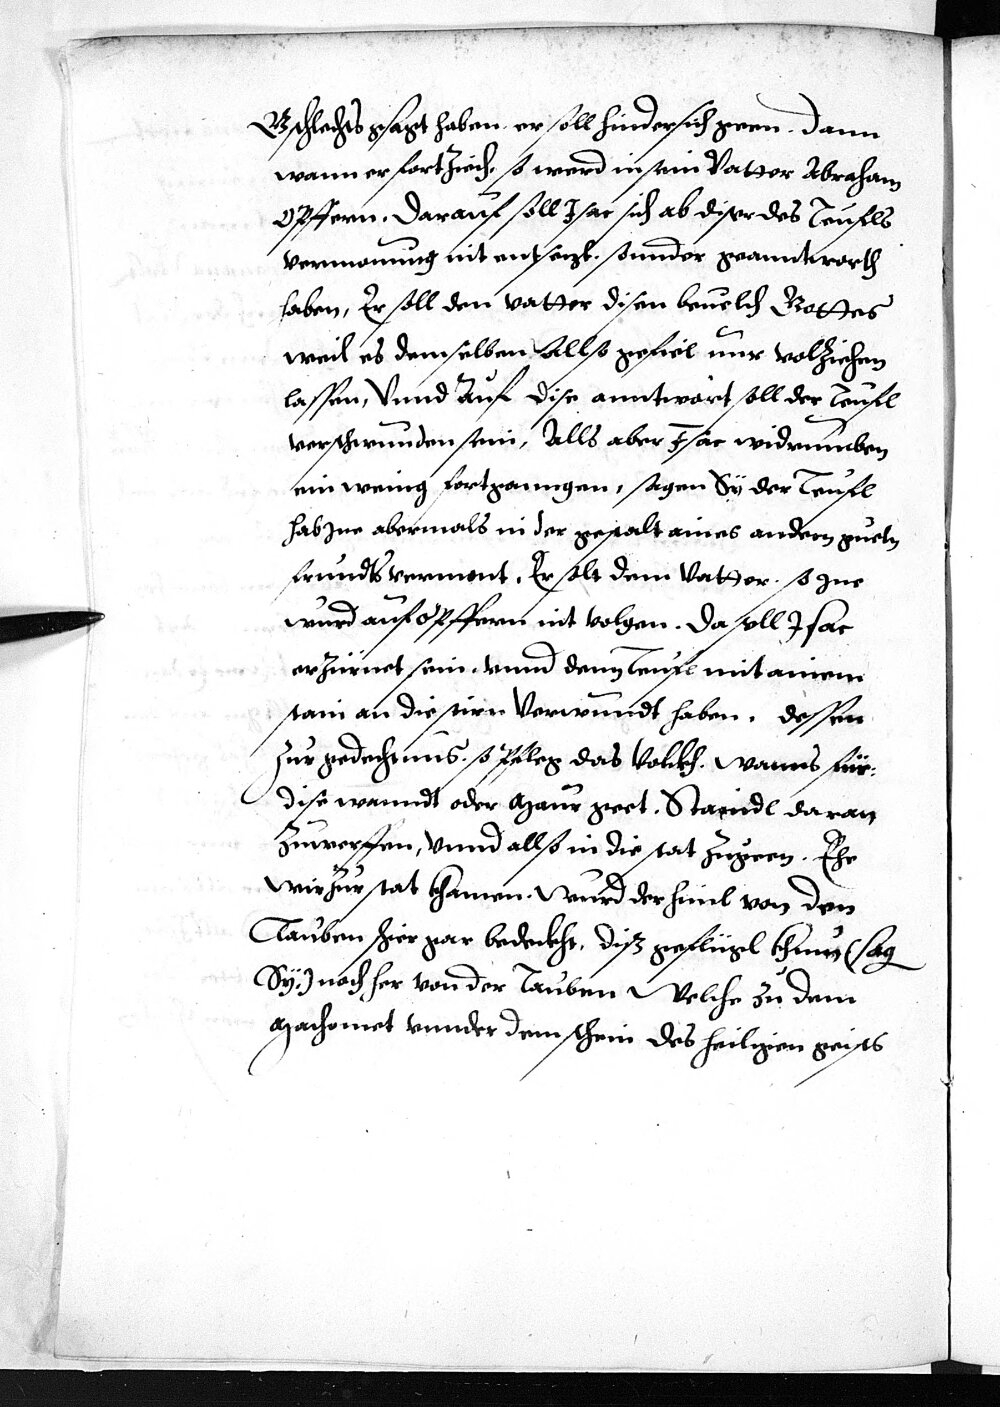 Gschlechts gsagt haben. er soll hindersich geen. Dann
wann er fortziech, so werd in sein Vatter Abraham
Opffern. Darauf soll Isac sich ab diser des Teufels
vermonung nit entsezt. sonnder geanntworth
haben, Er soll den vatter disen beuelch Gottes
weil es demselben Allso gefiel nur volziehen
lassen, Vnnd Auf dise anntwort soll der Teufl
verschwunden sein, Alls aber Isac widrumben
ein wenig fortgangen, sagen Sÿ der Teufl
hab Jne abermals in der gestalt aines andern guetn
freundts vermont. Er solt dem Vatter. so Jne
wurd aufopffern nit volgen. Da soll Isac
erzürnet sein. vnnd denn Teufl mit ainem
stain an die stirn Verwundt haben. dessen
zur gedechtnus. so pfleg das Volckh. wanns für
dise wanndt oder Maur geet. Staindl daran
zuwerffen, Vnnd allso in die stat zugeen. Ehe
wir zur stat khamen. wurd der himl von den
Tauben schier gar bedeckht. diß geflügl khum (sag
Sÿ) noch her von der Tauben Welche zu dem
Machomet vnnder dem schein des heiligen geists